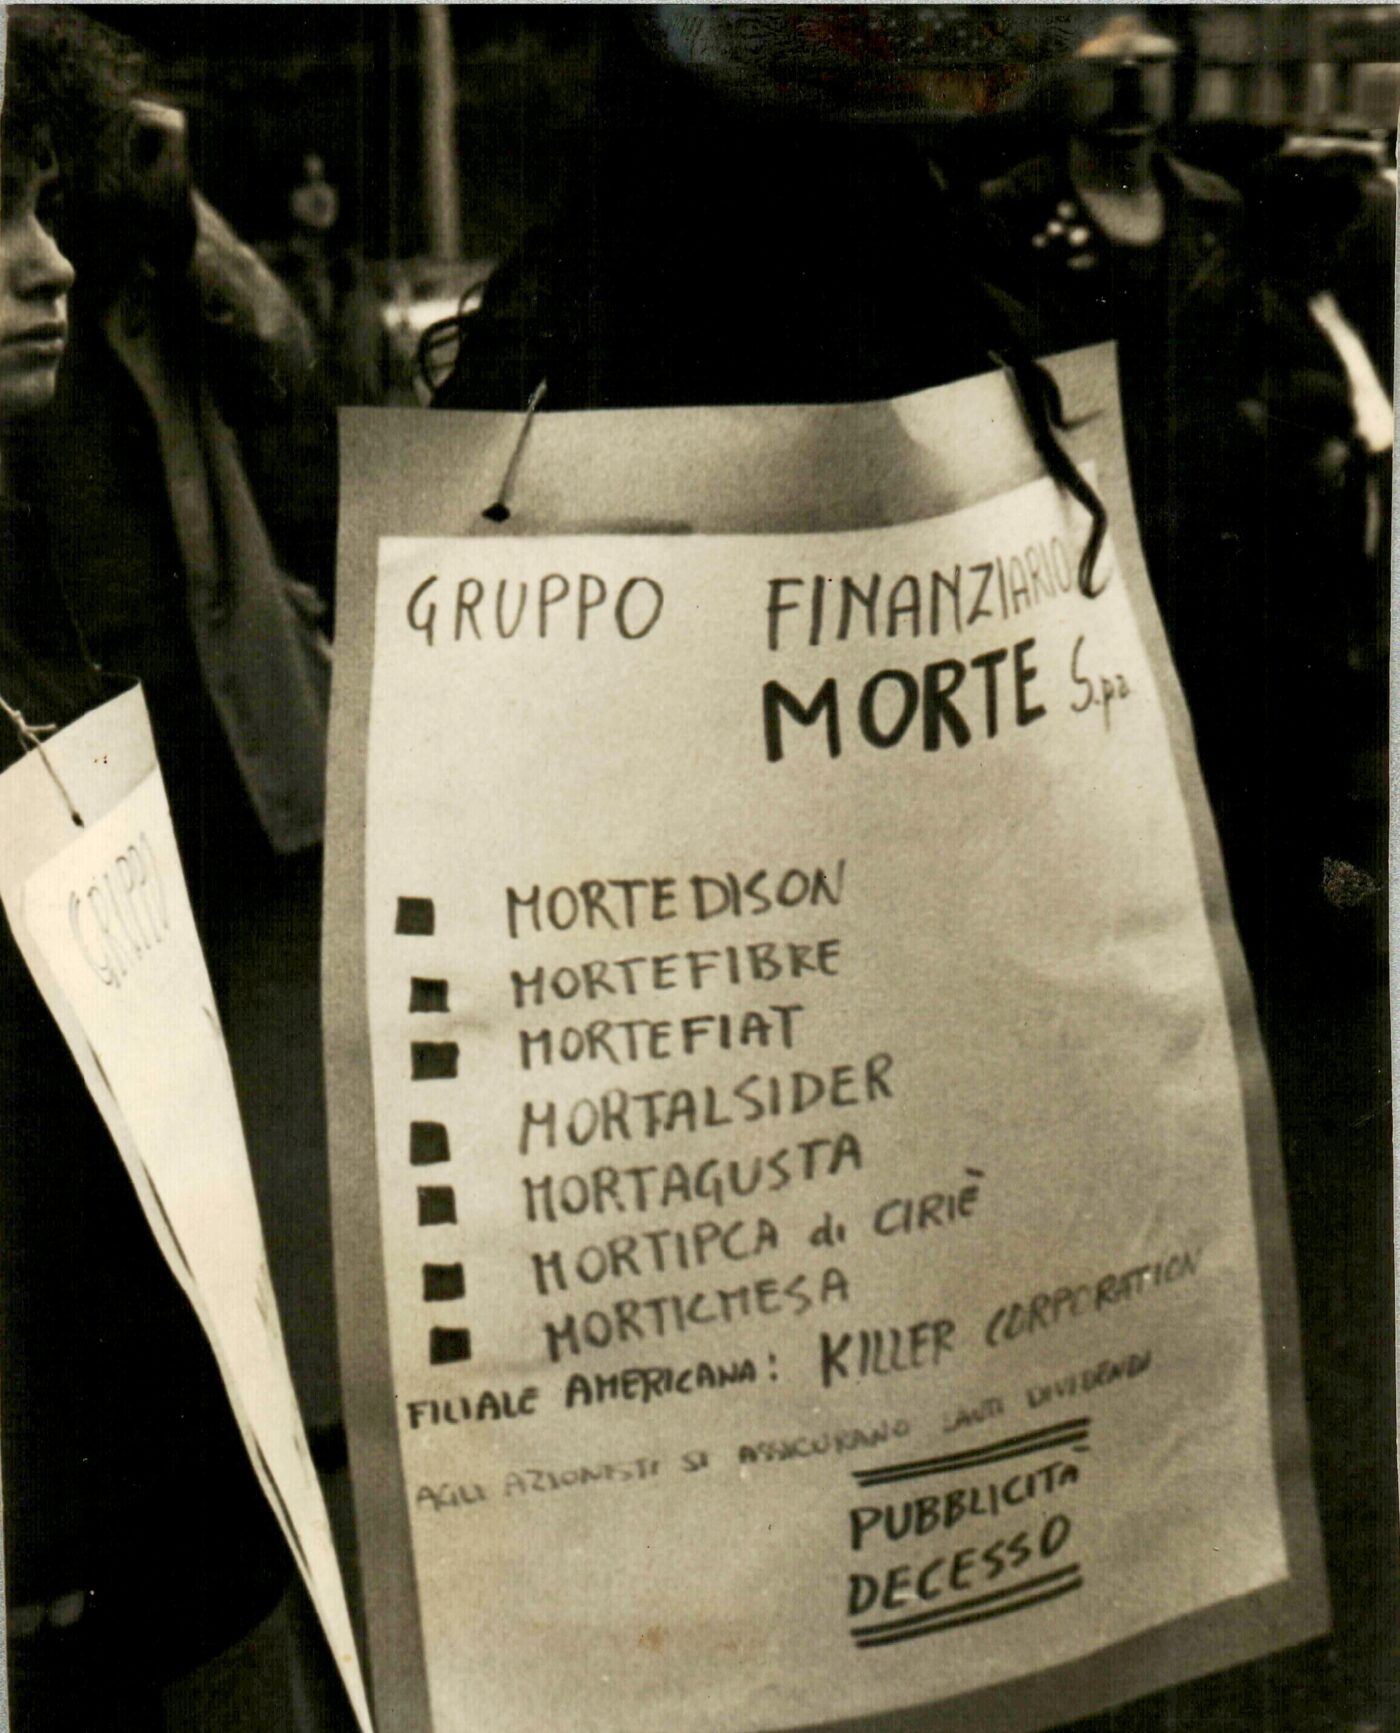 GRUPPO FINANZIARIO
MORTE S.pa.
MORTEDISON
MORTEFIBRE
MORTEFIAT
MORTALSIDER
MORTAGUSTA
MORTIPCA di CIRIÈ
MORTICMESA
FILIALE AMERICANA: KILLER CORPORATION
AGLI AZIONISTI SI ASSICURANO LAUTI DIVIDENDI
PUBBLICITÀ
DECESSO
GRUPPO